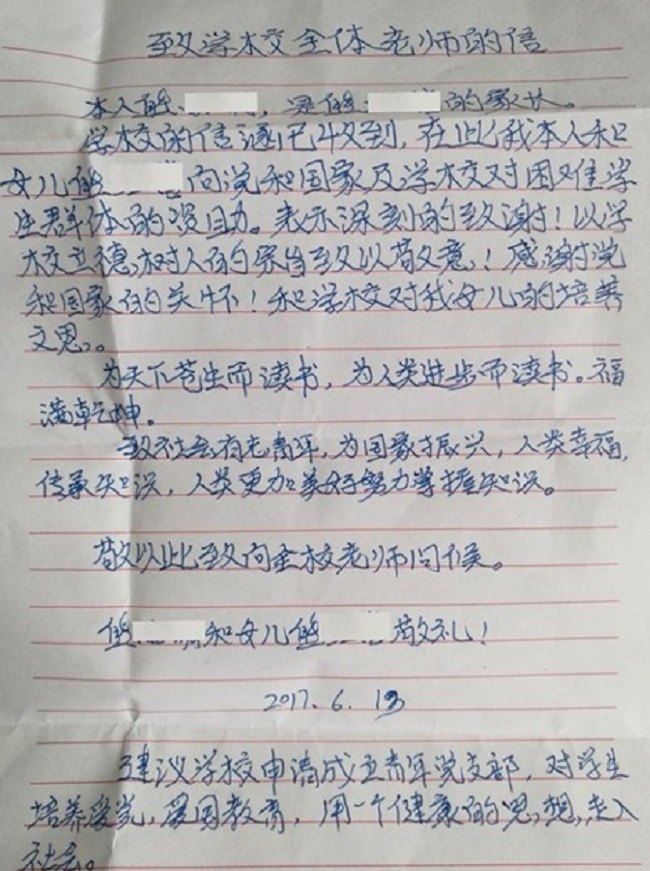 致学校全体老师的信
本人熊 ，是熊 的家长。
学校的信函已收到，在此我本人和
女儿熊 向党和国家及学校对困难学
生群体的资助。表示深刻的致谢！以学
校立德，树人的宗旨致以敬意，！感谢党
和国家的关怀！和学校对我女儿的培养
文思。
为天下苍生而读书，为人类进步而读书。福
满乾坤。
致社会有志青年，为国家振兴，人类幸福，
传承知识，人类更加美好努力掌握知识。
敬以此致向全校老师问候。
熊 和女儿熊 敬礼！
2017.6.13
建议学校申请成立青年党支部，对学生
培养爱党，爱国教育，用一个健康的思想，走入
社会。